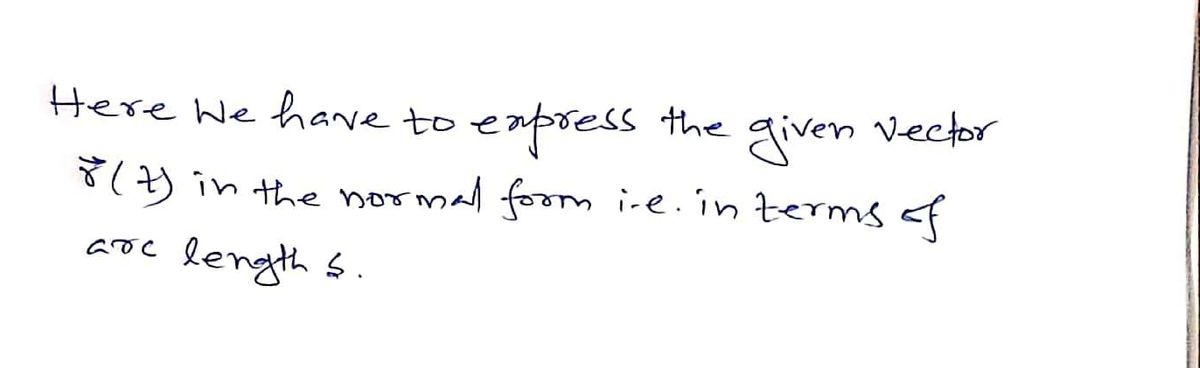 Here We have to express the given vector
r⃗(t) in the normal form i.e. in terms of
arc length s.